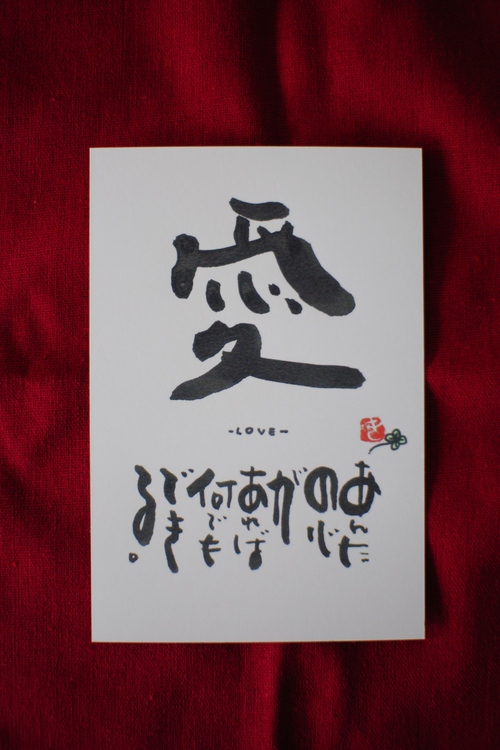 愛
-LOVE-
あんた
の心
が
あれば
何でも
でき
る。